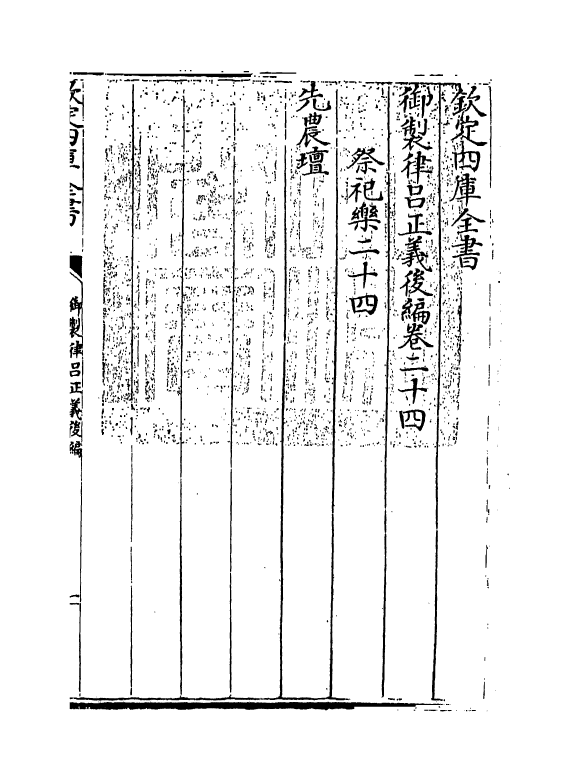 欽定四庫全書
御製律呂正義後編卷二十四
祭祀樂二十四
先農壇
欽定四庫全書
御製律呂正義後編